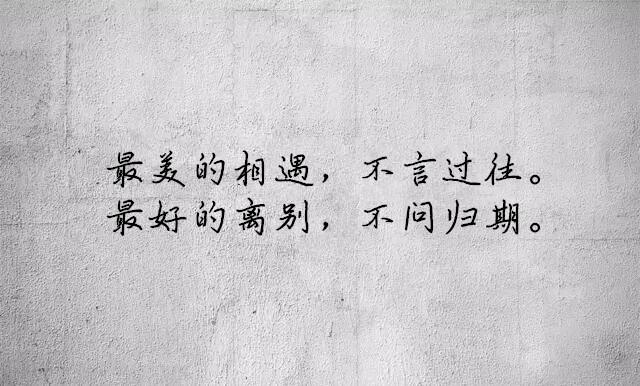 最美的相遇，不言过往。
最好的离别，不问归期。